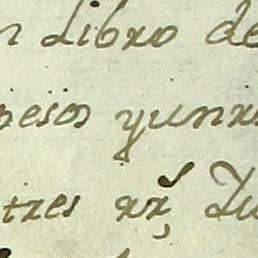 n Libro de
pesos yunx
tres xx^s Lu